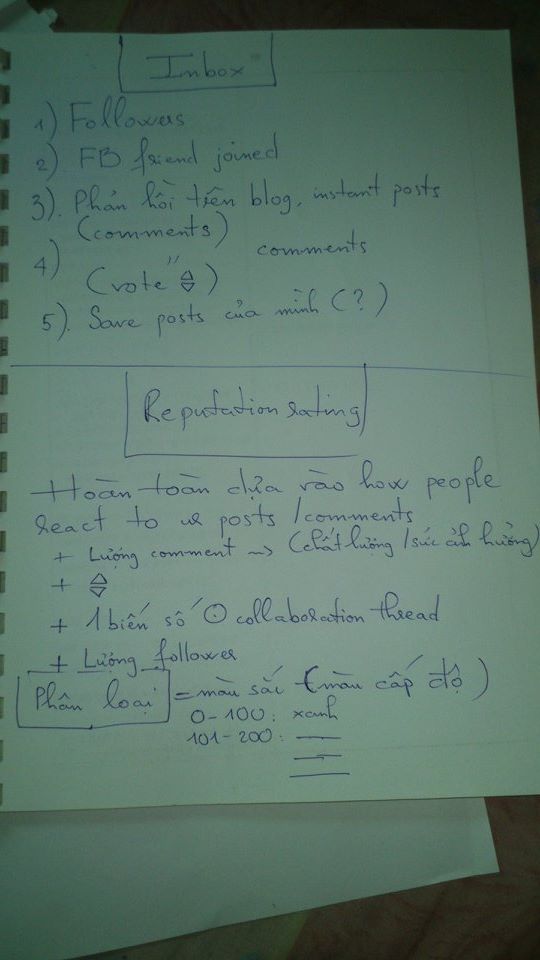 Inbox
1) Followers
2) FB friend joined
3). Phản hồi trên blog, instant posts
(comments)
4) " comments
(vote ⇳)
5). Save posts của mình (?)
Reputation rating
Hoàn toàn dựa vào how people
react to ur posts / comments
+ Lượng comment ~> (chất lượng / sức ảnh hưởng)
+ ⇳
+ 1 biến số ʘ collaboration thread
+ Lượng follower
Phân loại = màu sắc (màu cấp độ)
0-100: xanh
101-200: